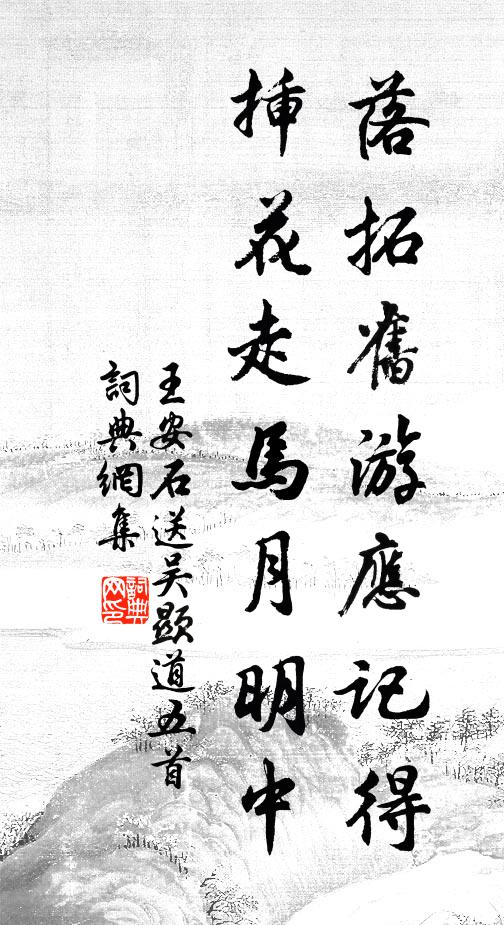 落拓舊游應記得
插花走馬月明中
王安石送吴顯道五首
詞典網集
詞典
网印